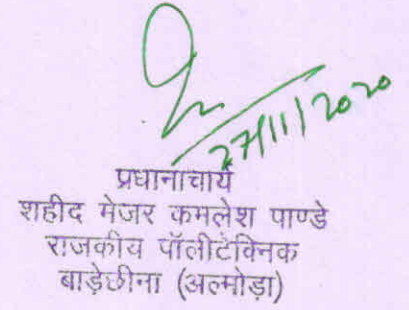 27/11/2020
प्रधानाचार्य
शहीद मेजर कमलेश पाण्डे
राजकीय पॉलीटेक्निक
बाड़ेछीना (अल्मोड़ा)